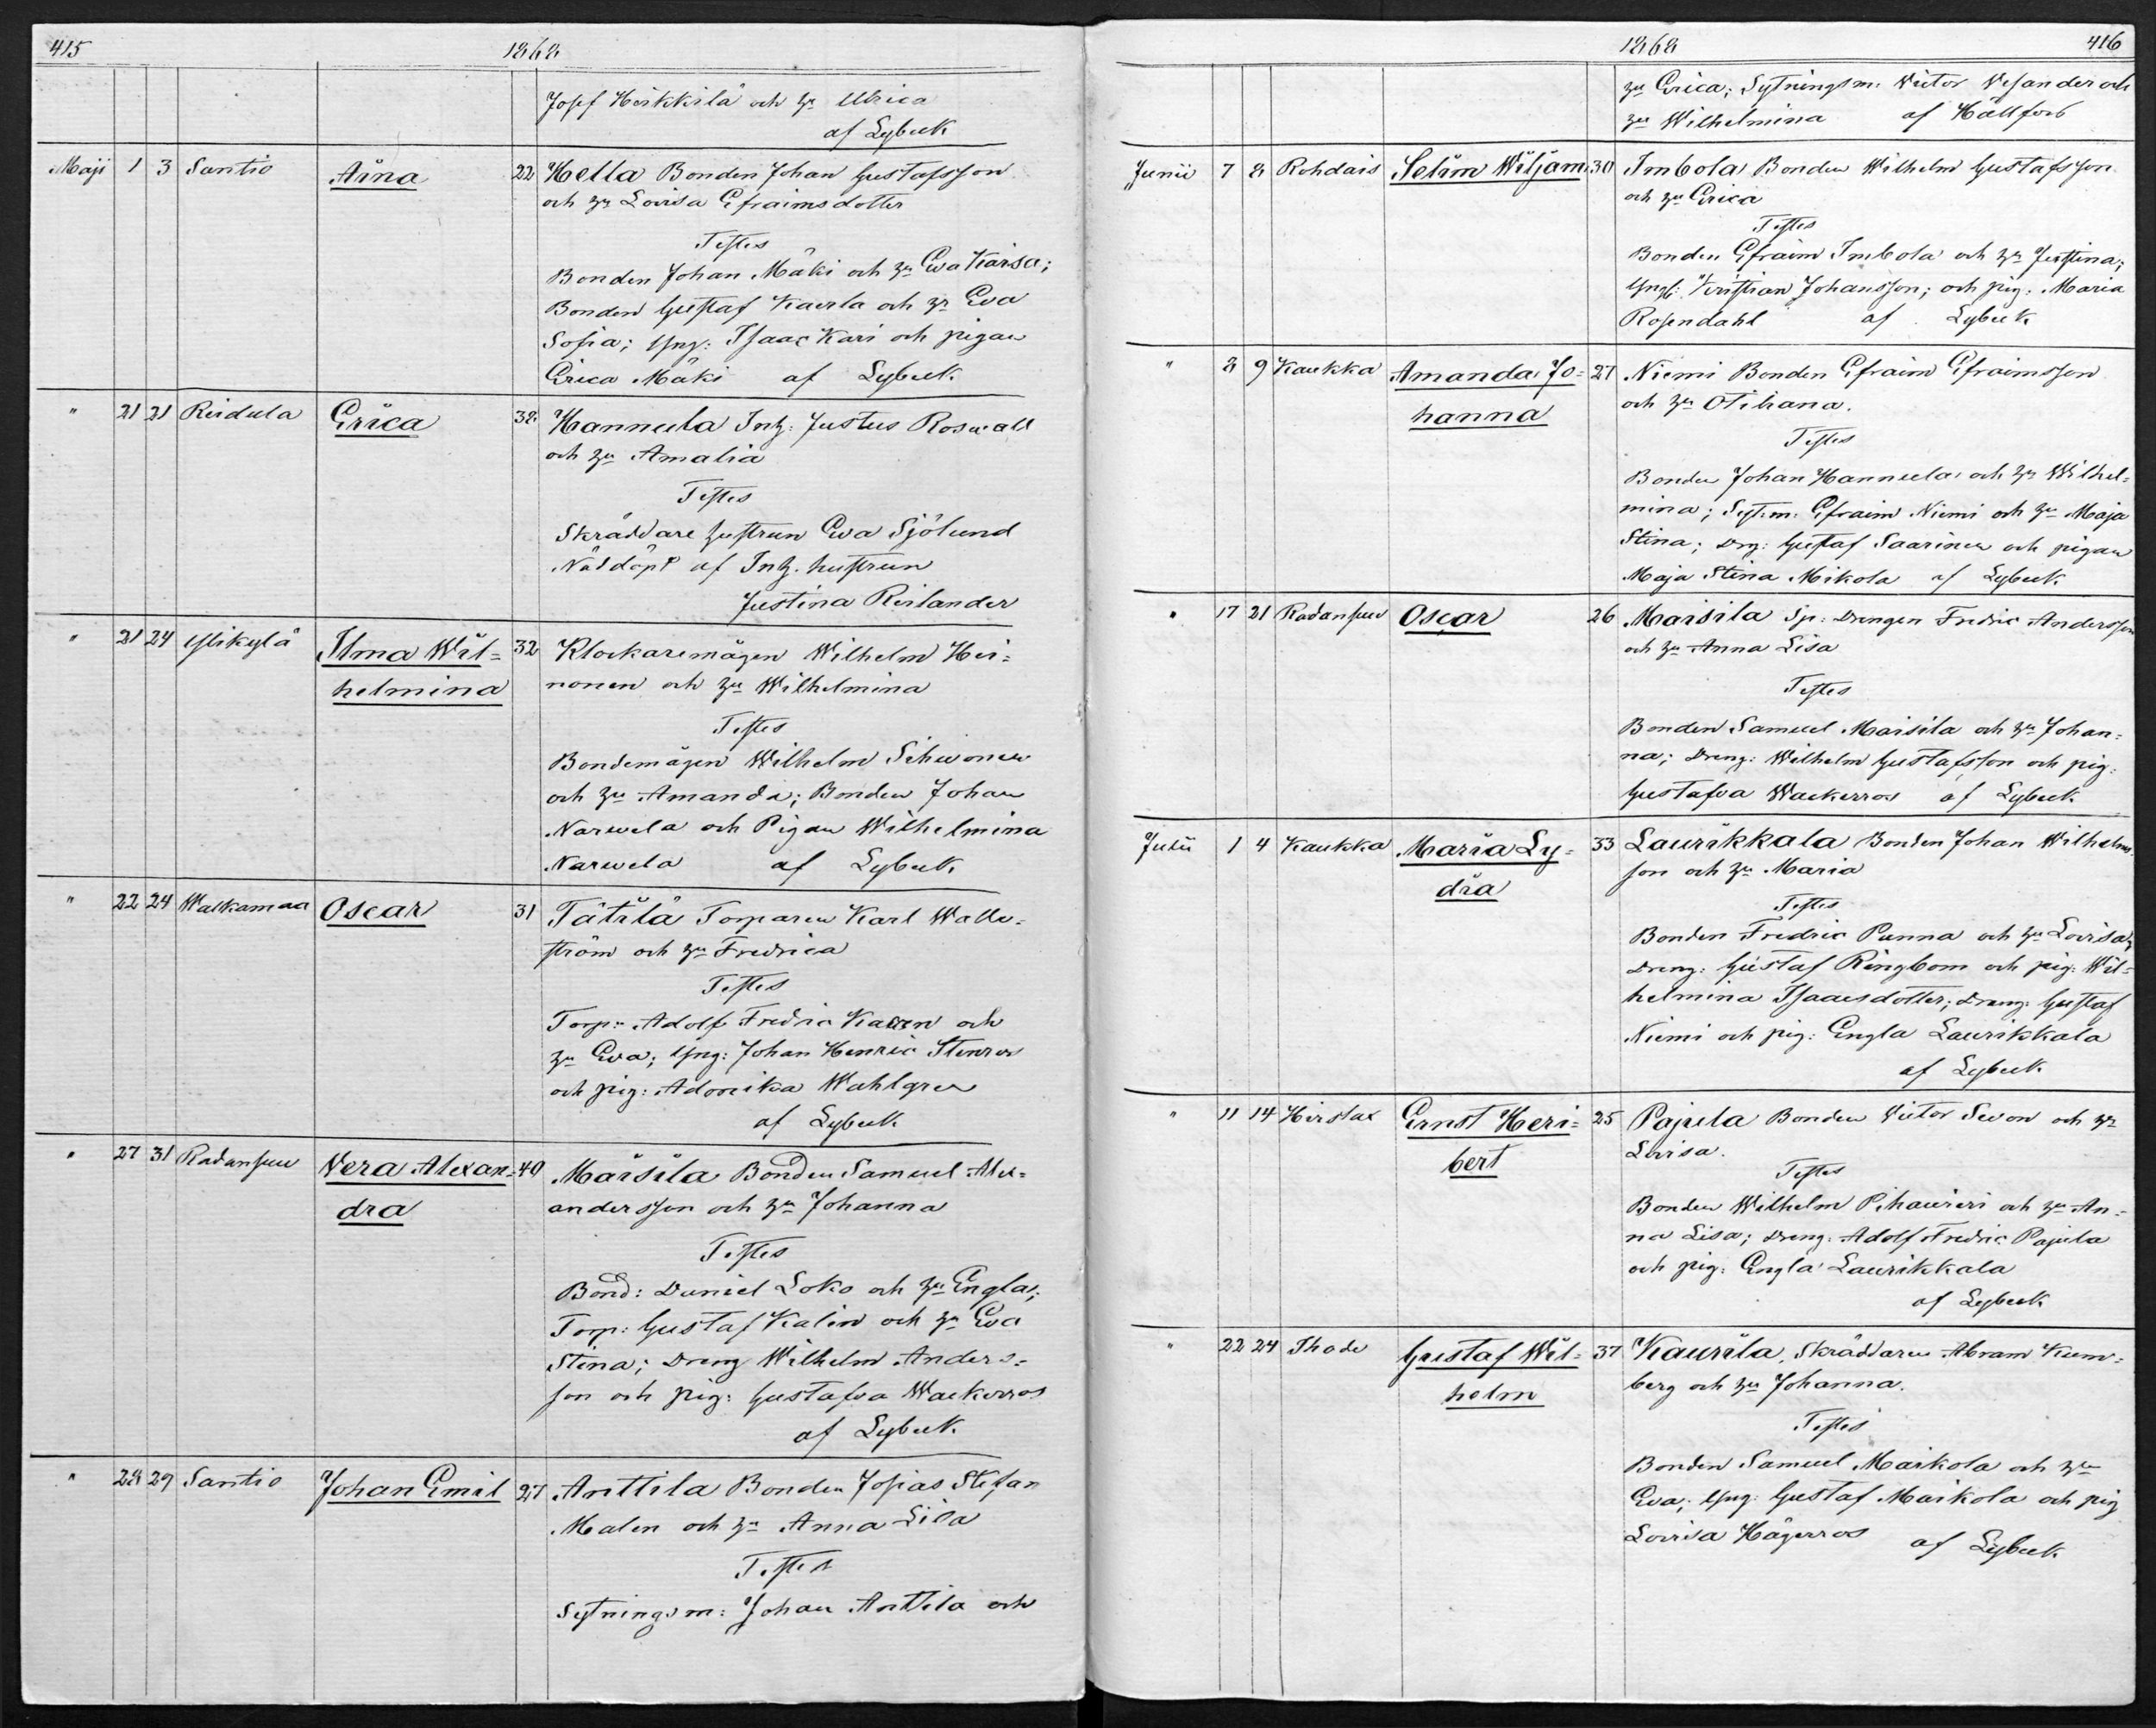 415
1868
Josef Heikkilä och hu Ulrica
af Lybeck
Maji 1 3 Santio Aina 22 Hella Bonden Johan Gustafsson
och hu Lovisa Efraimsdotter
Testes
Bonden Johan Mäki och hu Eva Kaisa;
Bonden Gustaf Kaerla och hu Eva
Sofia; Yng: Isaac Kari och pigan
Erica Mäki af Lybeck
" 21 21 Reidula Erica 38 Hannula Inh: Justus Roswall
och hu Amalia
Testes
Skräddare hustrun Eva Sjölund
Nöddöpt af Inh. hustrun
Justina Reilander
" 21 24 Ylikylä Ilma Wil= 32 Klockaremågen Wilhelm Hei=
helmina nonen och hu Wilhelmina
Testes
Bondemågen Wilhelm Sihvonen
och hu Amanda; Bonden Johan
Narwela och Pigan Wilhelmina
Narwela af Lybeck
" 22 24 Walkamaa Oscar 31 Tätilä Torparen Karl Walle=
ström och hu Fredrica
Testes
Torp: Adolf Fredric Kauren och
hu Eva; Yng: Johan Henric Stenros
och pig: Adonika Wahlgren
af Lybeck
" 27 31 Radansuu Vera Alexan= 40 Maisila Bonden Samuel Alex=
dra andersson och hu Johanna
Testes
Bond: Daniel Loko och hu Engla;
Torp: Gustaf Kalin och hu Eva
Stina; Dreng Wilhelm Anders=
son och pig: Gustafva Wackerros
af Lybeck
" 28 29 Santio Johan Emil 27 Anttila Bonden Josias Stefan
Malen och hu Anna Lisa
Testes
Sytningsm: Johan Anttila och
1868
416
hu Erica; Sytningsm: Victor Vesander och
hu Wilhelmina af Hällfors
Junii 7 8 Rohdais Selim Wiljam 30 Imbola Bonden Wilhelm Gustafsson
och hu Erica
Testes
Bonden Efraim Imbola och hu Justina;
Yngl: Kristian Johansson; och pig: Maria
Rosendahl af Lybeck
" 8 9 Kaukka Amanda Jo= 27 Niemi Bonden Efraim Efraimsson
hanna och hu Otiliana.
Testes
Bonden Johan Hannula och hu Wilhel=
mina; Syt:m: Efraim Niemi och hu Maja
Stina; Drg: Gustaf Saarinen och pigan
Maja Stina Mikola af Lybeck
" 17 21 Radansuu Oscar 26 Maisila Sp: Drengen Fredric Andersson
och hu Anna Lisa
Testes
Bonden Samuel Maisila och hu Johan=
na; Dreng: Wilhelm Gustafsson och pig:
Gustafva Wackerros af Lybeck
Julii 1 4 Kaukka Maria Ly= 33 Laurikkala Bonden Johan Wilhelms
dia son och hu Maria
Testes
Bonden Fredric Punna och hu Lovisa;
Dreng: Gustaf Ringbom och pig: Wil=
helmina Isaacsdotter; Dreng: Gustaf
Niemi och pig: Engla Laurikkala
af Lybeck
" 11 14 Heistas Ernst Heri= 25 Pajula Bonden Victor Sevon och hu
bert Lovisa.
Testes
Bonden Wilhelm Pihavieri och hu An=
na Lisa; Dreng: Adolf Fredric Pajula
och pig: Engla Laurikkala
af Lybeck
" 22 24 Ihode Gustaf Wil= 37 Kaurila, Skräddaren Abram Kum=
helm berg och hu Johanna.
Testes
Bonden Samuel Maikola och hu
Eva; Yng: Gustaf Maikola och pig
Lovisa Hägerros af Lybeck